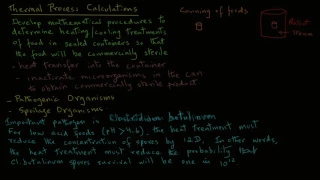 Thermal Process Calculations
Canning of foods
Develop mathematical procedures to
determine heating/cooling treatments
of food in sealed containers so that
the food will be commercially sterile
- heat transfer into the container
- inactivate microorganisms in the can
to obtain commercially sterile product
- Pathogenic Organisms
- Spoilage Organisms
Important pathogen is Clostridium botulinum
For low acid foods (pH > 4.6), the heat treatment must
reduce the concentration of spores by 12D. In other words,
the heat treatment must reduce the probability that
Cl. botulinum spores survival will be one in 10¹²